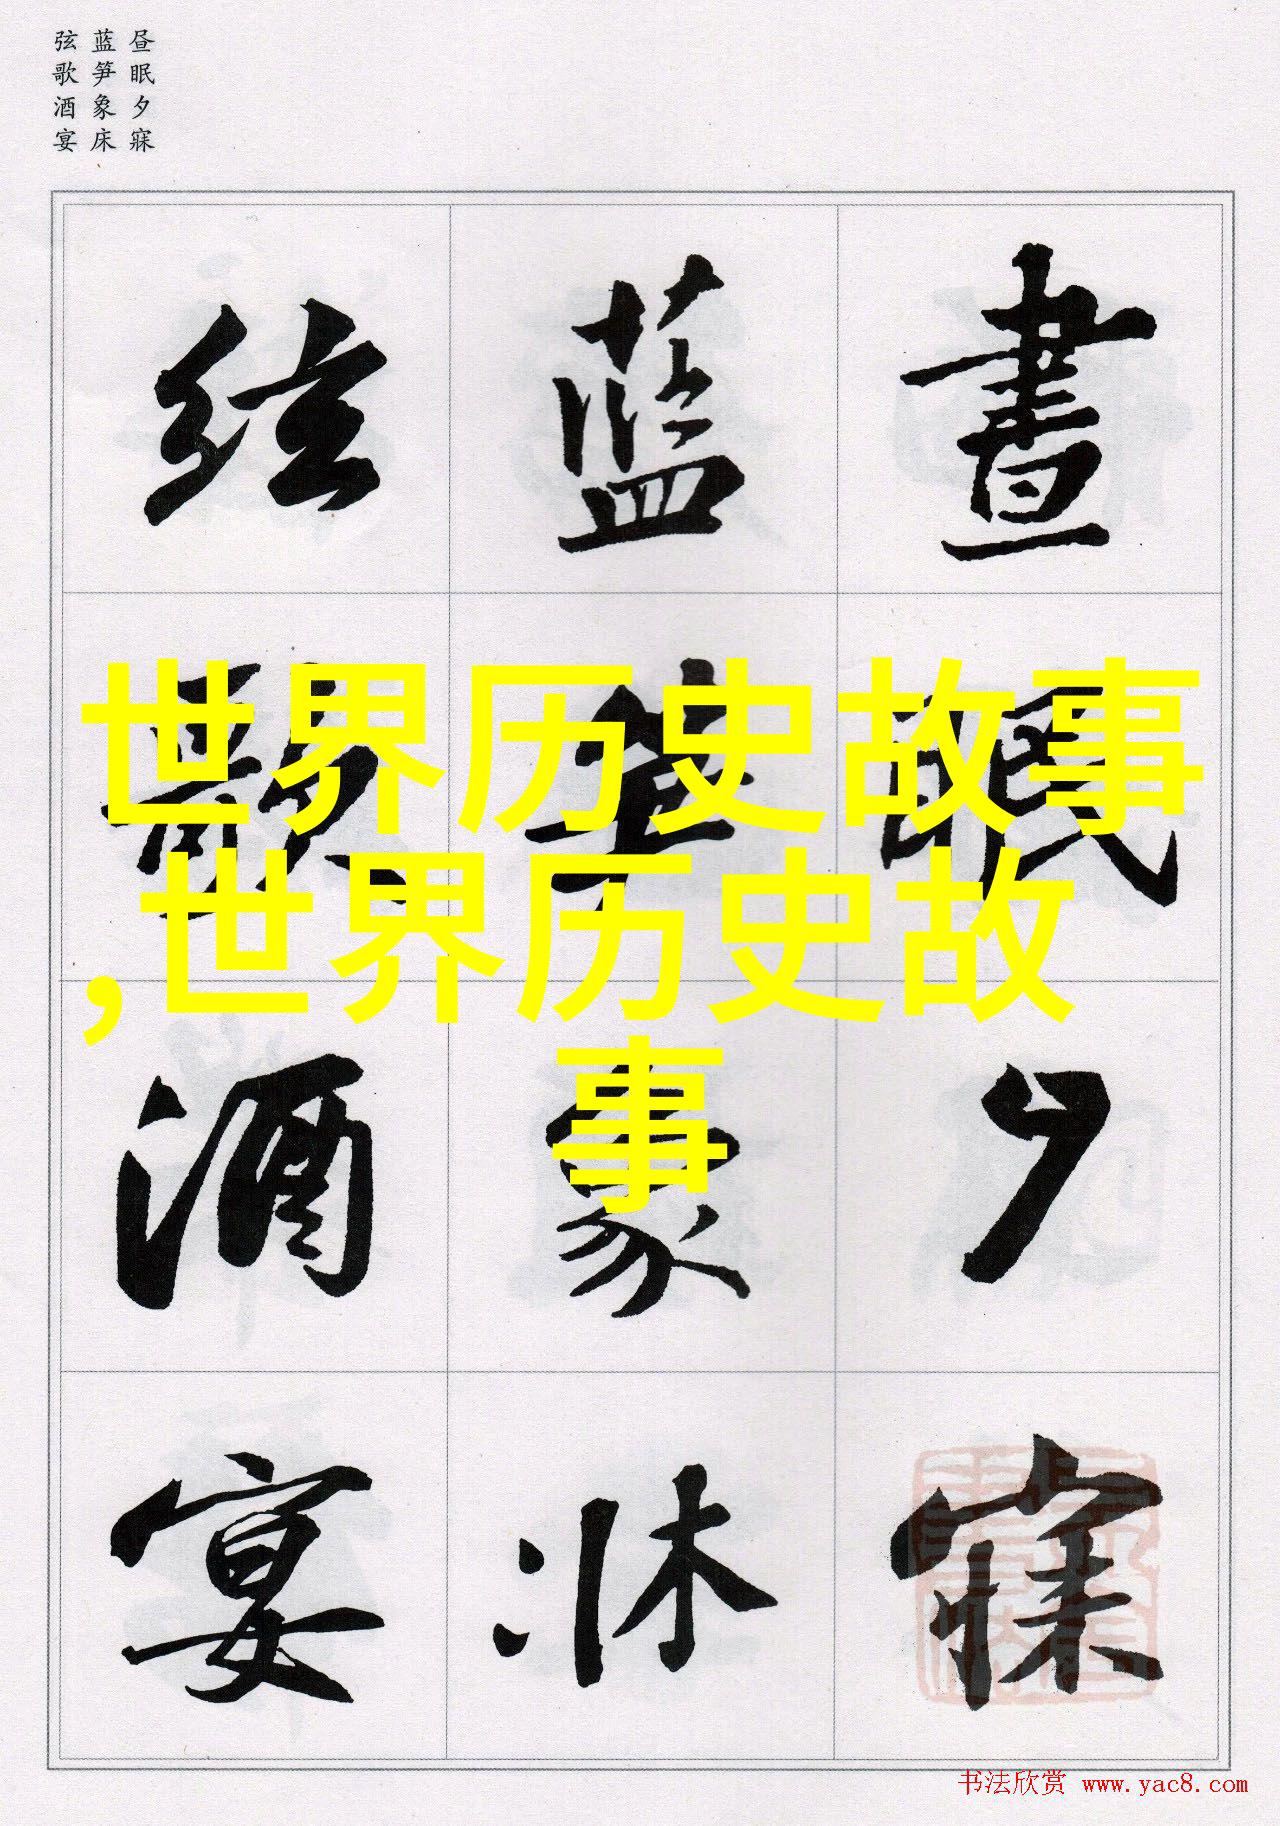 昼眠夕寐
蓝笋象床
弦歌酒宴
世界历史故事
,世界历史故
事
晝眠夕寐
藍笋象牀
絃歌酒宴
书法欣赏 www.yac8.com